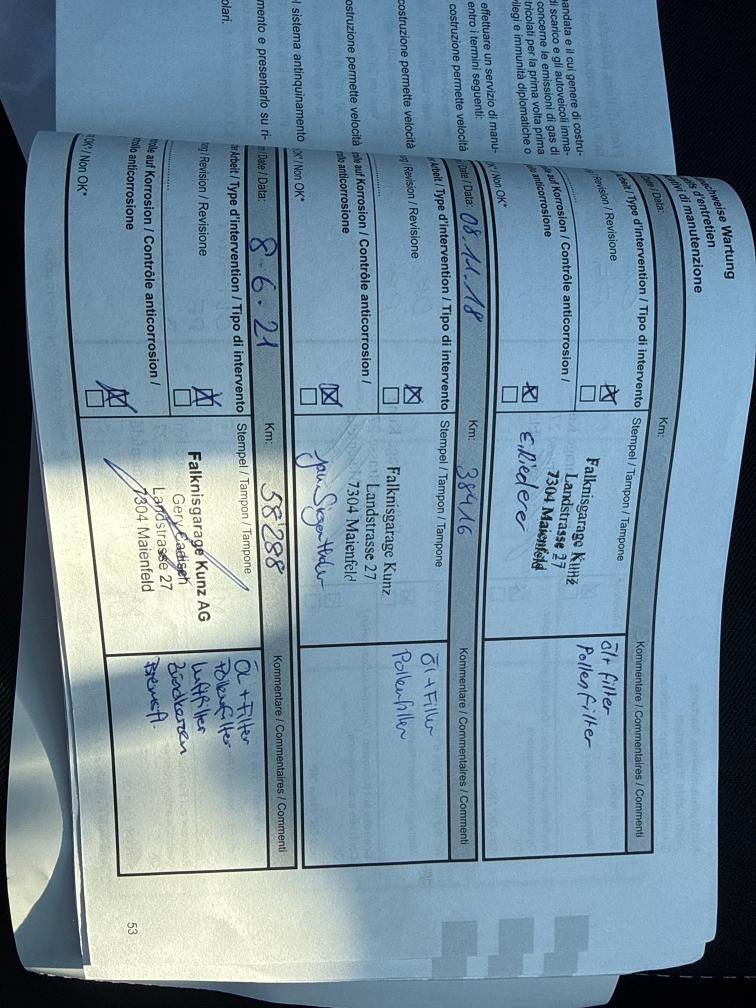 olari.
mento e presentarlo su ri-
l sistema antinquinamento
ostruzione permette velocità
costruzione permette velocità
costruzione permette velocità
entro i termini seguenti:
effettuare un servizio di manu-
ilegi e immunità diplomatiche o
tricolati per la prima volta prima
concerne le emissioni di gas di
di scarico e gli autoveicoli imma-
andata e il cui genere di costru-
achweise Wartung
d'entretien
di manutenzione
Date / Data:
Km:
Arbeit / Type d'intervention / Tipo di intervento
Stempel / Tampon / Tampone
Kommentare / Commentaires / Commenti
Revision / Revisione
auf Korrosion / Contrôle anticorrosion /
anticorrosione
OK* / Non OK*
Falknisgarage Kunz
Landstrasse 27
7304 Maienfeld
E. Riederer
Öl + Filter
Pollenfilter
Date / Data: 08.11.18
Km: 38416
Arbeit / Type d'intervention / Tipo di intervento
Stempel / Tampon / Tampone
Kommentare / Commentaires / Commenti
Revision / Revisione
auf Korrosion / Contrôle anticorrosion /
anticorrosione
OK* / Non OK*
Falknisgarage Kunz
Landstrasse 27
7304 Maienfeld
Öl + Filter
Pollenfilter
Date / Data: 8.6.21
Km: 58'288
Arbeit / Type d'intervention / Tipo di intervento
Stempel / Tampon / Tampone
Kommentare / Commentaires / Commenti
Revision / Revisione
auf Korrosion / Contrôle anticorrosion /
anticorrosione
OK* / Non OK*
Falknisgarage Kunz AG
Gery Cadisch
Landstrasse 27
7304 Maienfeld
ÖL + Filter
Pollenfilter
Luftfilter
Zündkerzen
Bremsfl.
53